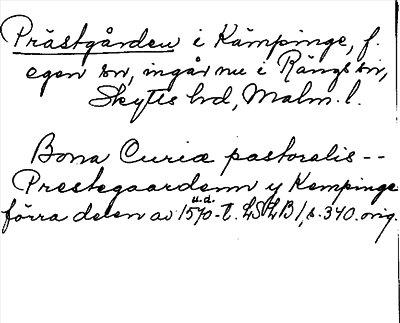 Prästgården i Kämpinge, f.
egen sn, ingår nu i Rängs sn,
Skytts hd, Malm. l.
Bona Curiæ pastoralis --
Prestegaardenn y Kempinge
förra delen av 1570-t. LSLB 1, s. 340. orig.